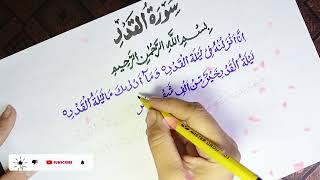 سورة القدر
بسم الله الرحمن الرحيم
انا انزلنه في ليلة القدر وما ادراك ما ليلة القدر
ليلة القدر خير من الف شهر
SUBSCRIBE